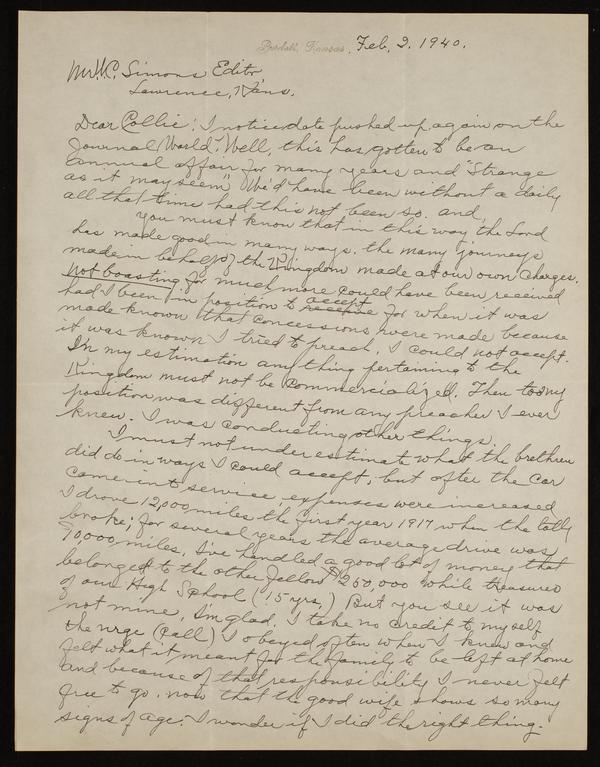 Kansas. Feb. 2. 1940.
Mr. W.C. Simons Editor,
Lawrence, Kans.
Dear Collie: I notice date pushed up again on the
Journal World. Well, this has gotten to be an
annual affair for many years and "Strange
as it may seem" We'd have been without a daily
all that time had this not been so. and,
You must know that in this way the Lord
has made good in many ways. the many journeys
made in behalf of the Kingdom made at our own charges.
Not boasting for much more could have been received
had I been in position to receive accept for when it was
made known that concessions were made because
it was known I tried to preach, I could not accept.
In my estimation any thing pertaining to the
Kingdom must not be commercialized. Then too my
position was different from any preacher I ever
knew. I was conducting other things.
I must not underestimate what the brethren
did do in ways I could accept; but after the Car
came into service expenses were increased
I drove 12,000 miles the first year 1917 when the colt
broke; for several years the average drive was
10,000 miles. I've handled a good lot of money that
belonged to the other fellow $250,000 while treasurer
of our High School (15 yrs.) But you see it was
not mine, I'm glad. I take no credit to myself
the urge (call) I obeyed often when I knew and
felt what it meant for the family to be left at home
and because of that responsibility I never felt
free to go. now that the good wife shows so many
signs of age. I wonder if I did the right thing.